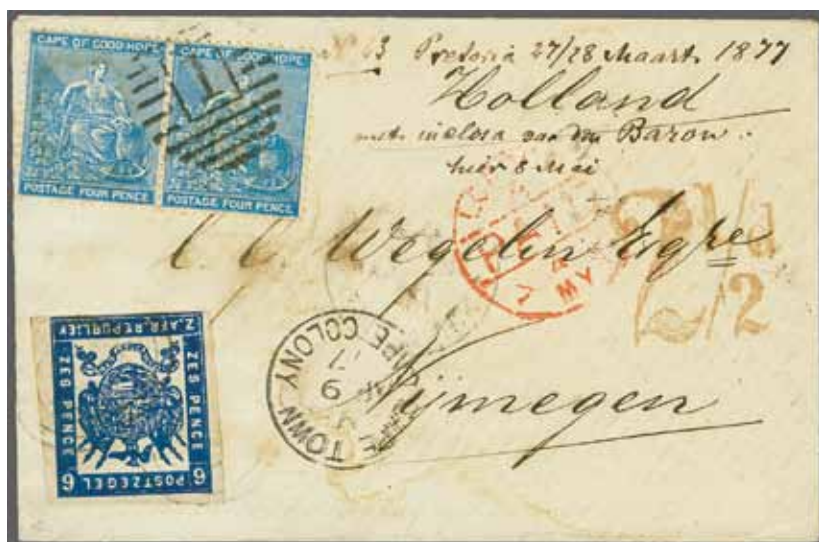 CAPE OF GOOD HOPE
POSTAGE FOUR PENCE
CAPE OF GOOD HOPE
POSTAGE FOUR PENCE
1
No 13 Pretoria 27/28 Maart 1877
Holland
van den Baron.
hier 8 Mei
C. C. Wegelin Esqre
Nijmegen
1/2
CAPE TOWN
CAPE COLONY
9
Z. AFR. REPUBLIEK
ZES PENCE
ZES PENCE
6 POSTZEGEL 6